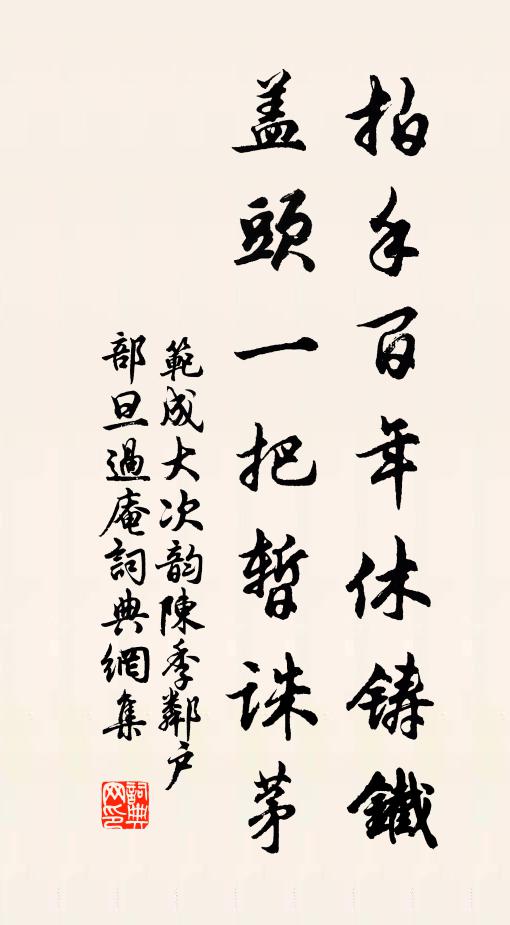 拍手百年休鑄鐵
盖頭一把暫誅茅
範成大次韵陳季鄰户
部旦過庵詞典網集
詞典网印